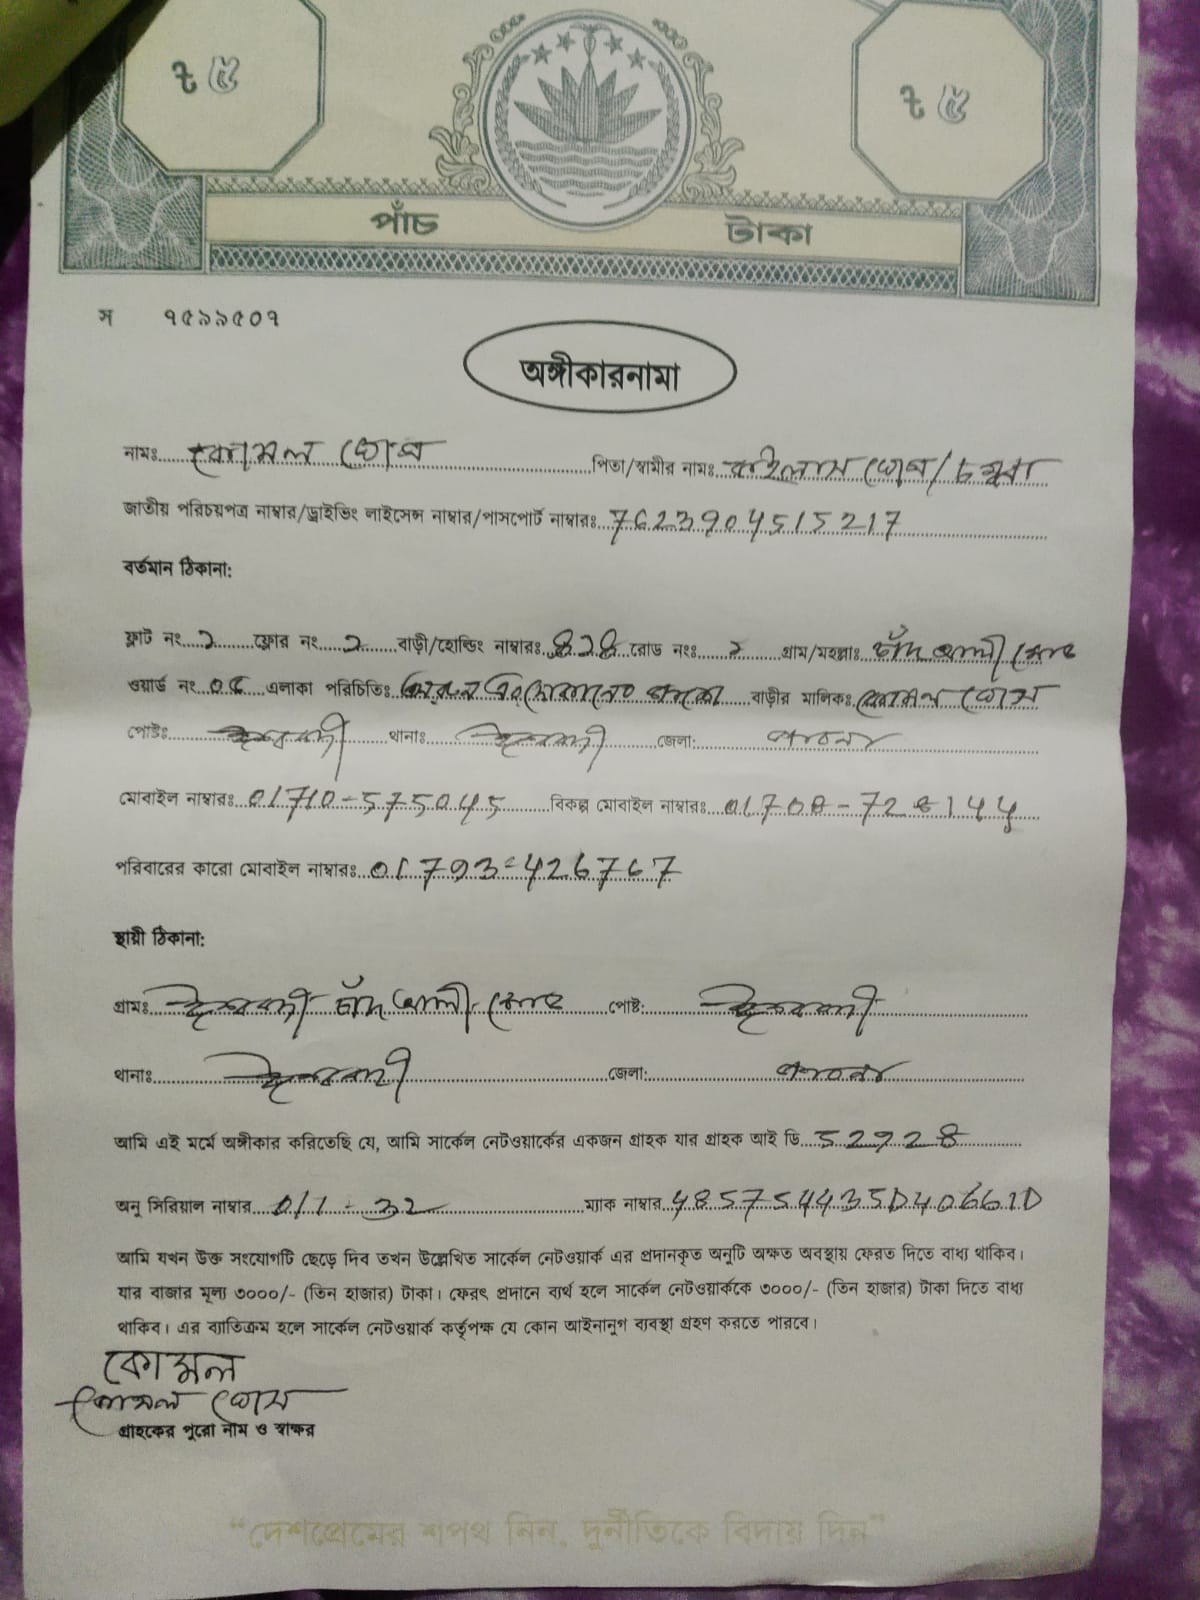 ৳ ৫ ৳ ৫
পাঁচ টাকা
স ৭৫৯৯৫০৭
অঙ্গীকারনামা
নামঃ কোমল ঘোষ পিতা/স্বামীর নামঃ কইলাস ঘোষ/
জাতীয় পরিচয়পত্র নাম্বার/ড্রাইভিং লাইসেন্স নাম্বার/পাসপোর্ট নাম্বারঃ 7623904515217
বর্তমান ঠিকানা:
ফ্লাট নং ফ্লোর নং বাড়ী/হোল্ডিং নাম্বারঃ রোড নংঃ গ্রাম/মহল্লাঃ চাঁদ আলী মোড়
ওয়ার্ড নং এলাকা পরিচিতিঃ বাড়ীর মালিকঃ কোমল ঘোস
পোষ্টঃ ঈশ্বরদী থানাঃ ঈশ্বরদী জেলা: পাবনা
মোবাইল নাম্বারঃ 01710-575045 বিকল্প মোবাইল নাম্বারঃ
পরিবারের কারো মোবাইল নাম্বারঃ 01793-426767
স্থায়ী ঠিকানা:
গ্রামঃ ঈশ্বরদী চাঁদ আলী মোড় পোষ্ট: ঈশ্বরদী
থানাঃ ঈশ্বরদী জেলা: পাবনা
আমি এই মর্মে অঙ্গীকার করিতেছি যে, আমি সার্কেল নেটওয়ার্কের একজন গ্রাহক যার গ্রাহক আই ডি
অনু সিরিয়াল নাম্বার 0/1 - 32 ম্যাক নাম্বার 485754435D40661D
আমি যখন উক্ত সংযোগটি ছেড়ে দিব তখন উল্লেখিত সার্কেল নেটওয়ার্ক এর প্রদানকৃত অনুটি অক্ষত অবস্থায় ফেরত দিতে বাধ্য থাকিব।
যার বাজার মূল্য ৩০০০/- (তিন হাজার) টাকা। ফেরৎ প্রদানে ব্যর্থ হলে সার্কেল নেটওয়ার্ককে ৩০০০/- (তিন হাজার) টাকা দিতে বাধ্য
থাকিব। এর ব্যাতিক্রম হলে সার্কেল নেটওয়ার্ক কর্তৃপক্ষ যে কোন আইনানুগ ব্যবস্থা গ্রহণ করতে পারবে।
কোমল
কোমল ঘোস
গ্রাহকের পুরো নাম ও স্বাক্ষর
“দেশপ্রেমের শপথ নিন, দুর্নীতিকে বিদায় দিন”